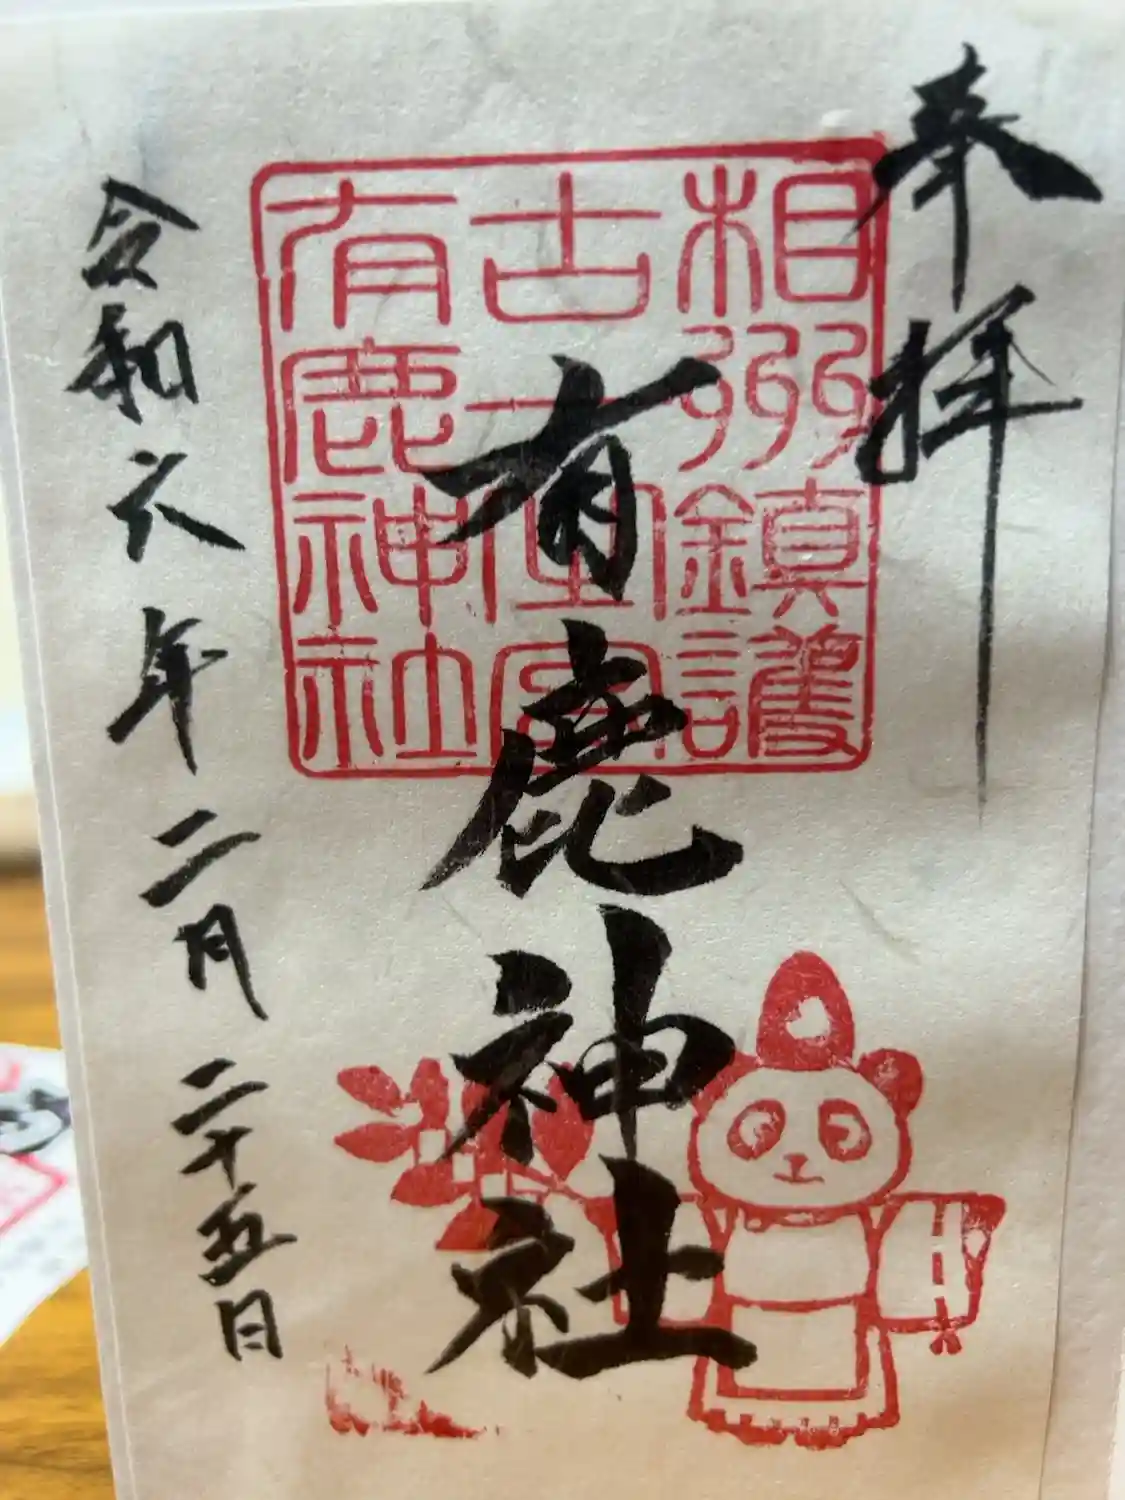 奉拝
相州鎮護
古大座宮
有鹿神社
有鹿神社
令和六年二月二十五日